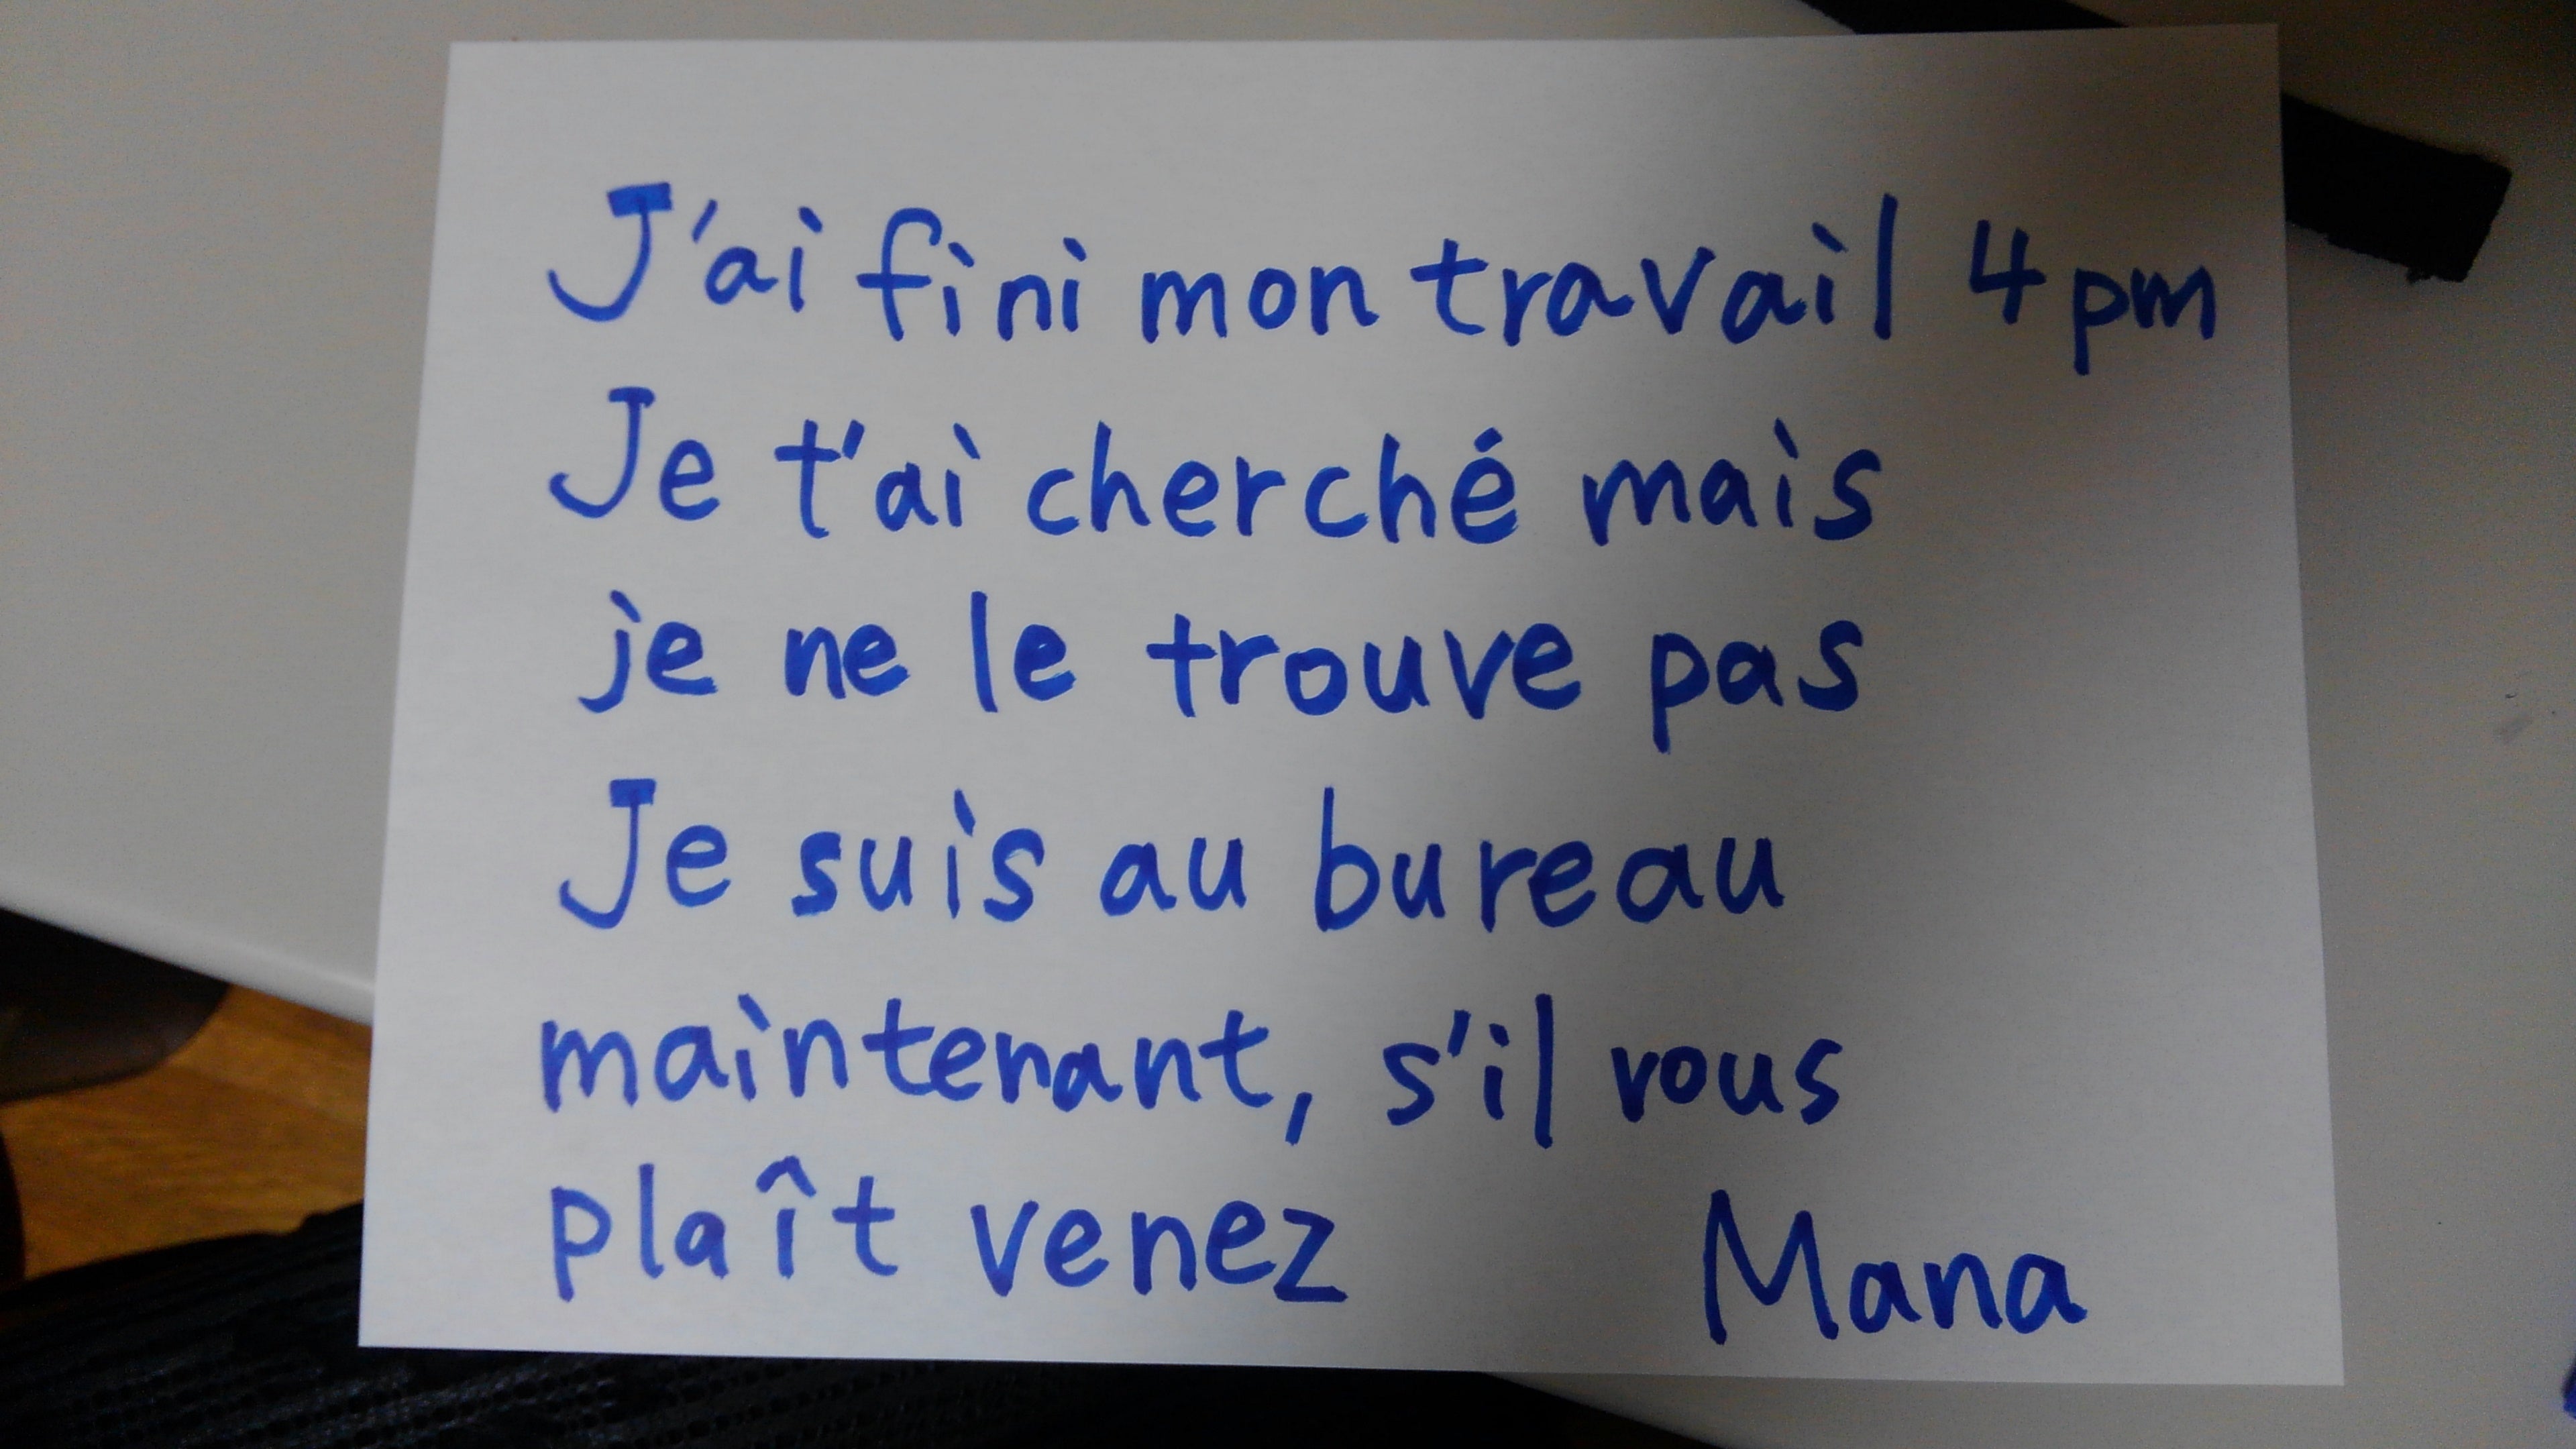 J'ai fini mon travail 4pm
Je t'ai cherché mais
je ne le trouve pas
Je suis au bureau
maintenant, s'il vous
plaît venez
Mana